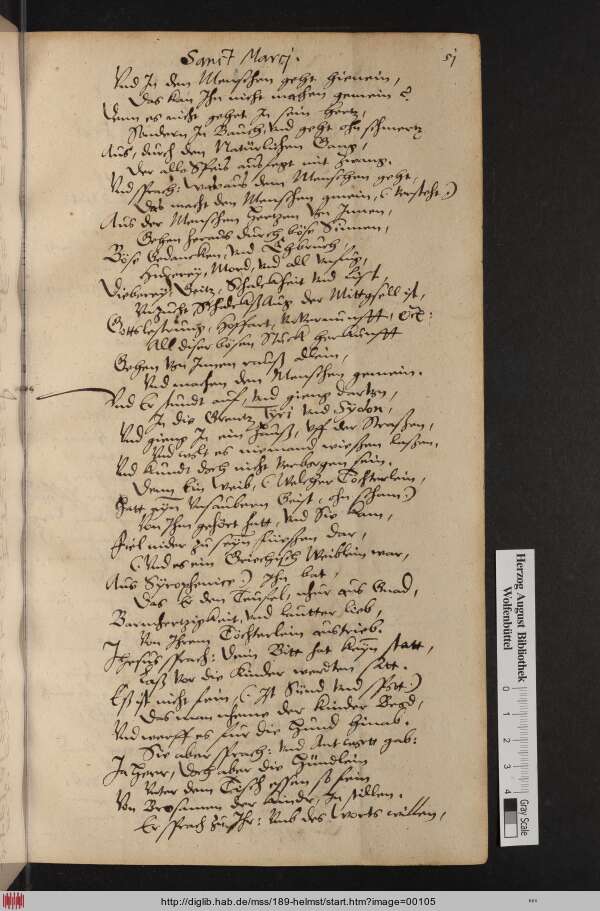 Sanct Marcj.
51
Vnd In den Menschen geht hienein,
Das kan Ihn nicht machen gemein?
Denn es nicht gehet In sein Hertz,
Sondern In Bauch, Vnd geht ohn schmertz
Aus, durch den Natürlichen Gang,
Der alle Speis ausfegt mit zwang.
Vnd sprach: Was aus dem Menschen geht,
Das macht den Menschen gmein, (Versteht:)
Aus der Menschen Hertzen Von Innen,
Gehen heraus durch böse Sinnen,
Böse Gedancken, Vnd Ehbruch,
Hurerey, Mord, Vnd all
Dieberey, Geitz, Schalckheit Vnd List,
Vnzucht, Schalcksaug der Mittgsell ist,
Gottslestrung, Hoffart, Vnvernunfft, etc:
All diser bösen Stuck herkunfft
Gehen Von Innen raus allein,
Vnd machen den Menschen gemein.
Vnd Er stundt auf, Vnd gieng dartzu,
In die Grentz Tyri Vnd Sydon,
Vnd gieng In ein Hauß, Vff der Strassen,
Vnd wolt es niemand wissen lassen,
Vnd kundt doch nicht Verborgen sein.
Denn Ein Weib, (Welcher Töchterlein,
Hatt eyn Vnsaubern Geist, ohn scham:)
Von Ihm gehört hatt, Vnd Sie kam,
Fiel nider zu seyn füessen dar,
(Vnd es ein Griechisch Weiblein war,
Aus Syrophenice:) Ihn bat,
Das Er den Teufel, nur aus Gnad,
Barmhertzigkait, Vnd lautter lieb,
Von Ihrem Töchterlein austrieb.
Jhesus sprach: Dein Bitt hat keyn statt,
Laß Vor die Kinder werden satt.
Est ist nicht fein, (Ist Sünd Vnd spott:)
Das man neme der Kinder Brod,
Vnd werff es für die Hund hinab.
Sie aber sprach: Vnd Antwortt gab:
Ja Herr, Doch aber die Hündlein
Vnter dem Tisch essen so fein
Von Brosamen der Kinder, In stillen.
Er sprach zu Ihr: Vmb des Worts willen,
Herzog August Bibliothek
Wolfenbüttel
0 1 2 3 4
Gray Scale
http://diglib.hab.de/mss/189-helmst/start.htm?image=00105